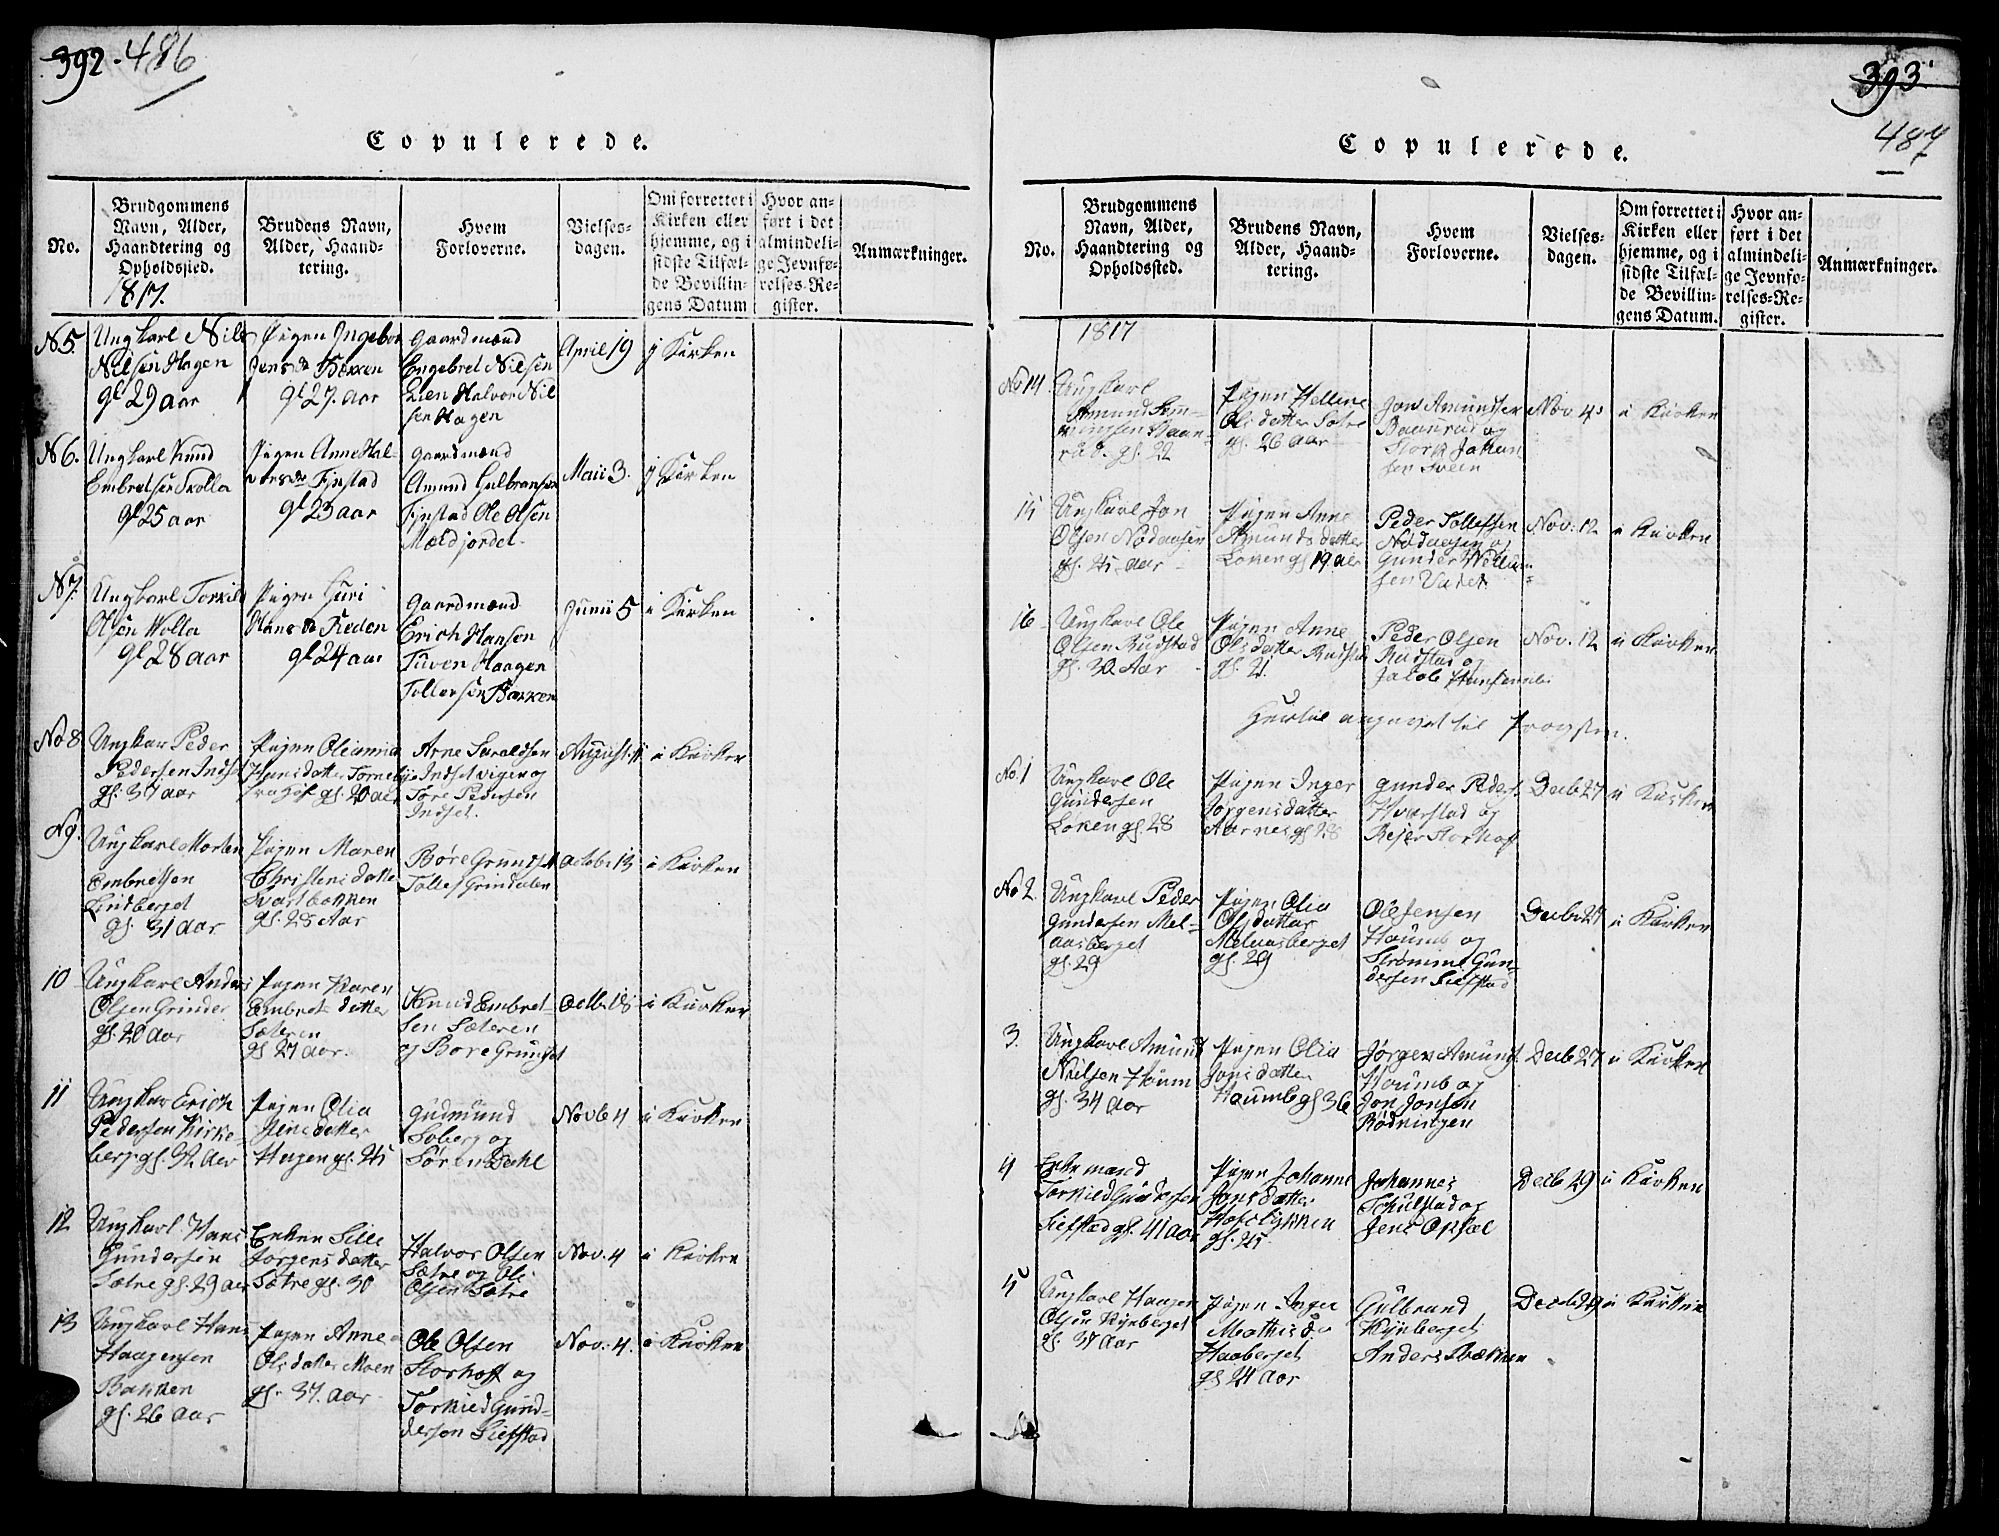 392. 486
Copulerede.
No.
Brudgommens
Navn, Alder,
Haandtering og
Opholdssted.
1817.
Brudens Navn,
Alder, Haand-
tering.
Hvem
Forloverne.
Vielses-
dagen.
Om forrettet i
Kirken eller
hjemme, og i
sidste Tilfæl-
de Bevillin-
gens Datum
Hvor an-
ført i det
almindeli-
ge Jevnfø-
relses-Re-
gister.
Anmærkninger.
N5.
Ungkarl Nils
Nilsen Hagen
gl 29 aar
Pigen Ingebor
Jens dr Bakken
gl 27. aar
Gaardmænd
Engebret Nilsen
Lien Halvor Nil
sen Hagen
April 19
j Kirken
N6.
Ungkarl Knud
Embretsen Trolla
gl 25 aar
Pigen Anne Hal-
vors dr Fjnstad
gl 23 aar
gaardmænd
Amund Gulbransen
Fjnstad Ole Olsen
Mældjordet
Maii 3.
j Kirken
N7.
Ungkarl Torkild
Olsen Wolla
gl 28 aar
Pigen Guri
Hans dr Reden
gl 24 aar
gaardmænd
Erich Hansen
Tuven Haagen
Tollersen Bakken
Junii 5
i Kirken
No 8
Ungkar Peder
Pedersen Indset
gl. 37 aar
Pigen Oleanna
Hansdatter Torneby
fra Hof gl. 20 aar
Arne Haraldsen
Indset vigen og
Tore Pedersen
Indset.
August
i Kirken
N9.
Ungkarl Morten
Embretsen
Lindberget
gl. 31 aar
Pigen Maren
Christensdatter
Svartbakken
gl. 28 Aar
Børe Grundset
Tollef Grindalen
Octobr 13
i Kirken
10
Ungkarl Anders
Olsen Grinder
gl. 20 aar
Pigen Karen
Embrets datter
Sæteren
gl 27 aar.
Knud Embret-
sen Sæteren
og Bore Grundset
Octb. 18
i Kirken
11
Ungkar Erich
Pedersen Kirke-
berg gl. 32 aar
Pigen Olia
Jensdatter
Hagen gl. 25
Gudmund
Soberg og
Søren Dahl
Novb 4
i Kirken
12
Ungkarl Hans
Gundersen
Sætre gl 29 aar
Enken Sille
Jørgens datter
Sætre gl. 30
Halvor Olsen
Sætre og Ole
Olsen Sætre
Nov. 4
i Kirken
13
Ungkarl Hans
Haagensen
Bakken
gl. 26 aar
Pigen Anne
Olsdatter Moen
gl. 37. aar
Ole Olsen
Storhoff og
Torkied Gund-
dersen Siefstad
Nov. 4.
i Kirken
393.
487
Copulerede.
No.
Brudgommens
Navn, Alder,
Haandtering og
Opholdssted.
Brudens Navn,
Alder, Haand-
tering.
Hvem
Forloverne.
Vielses-
dagen.
Om forrettet i
Kirken eller
hjemme, og i
sidste Tilfæl-
de Bevillin-
gens Datum.
Hvor an-
ført i det
almindeli-
ge Jevnfø-
relses-Re-
gister.
Anmærkninger.
1817
No 14
Ungkarl
Amund Sem-
mingsen Baan-
rud. gl. 22
Pigen Hellene
Olsdatter Sætre
gl. 26 aar
Jon Amundsen
Baanrud og
Stork Johan
sen Sveen
Nov. 4
i Kirken
15
Ungkarl Jon
Olsen Nødaasen
gl. 25 aar
Pigen Anne
Amunds datter
Løken gl 19 aar
Peder Tollefsen
Nødaasen og
Gunder
sen
Nov: 12
i Kirken
16
Ungkarl Ole
Olsen Rudstad
gl. 30 Aar
Pigen Anne
Olsdatter Rudstad
gl. 21.
Peder Olsen
Rudstad og
Jacob
Nov. 12
i Kirken
Hertil angivet til Provsten.
No. 1
Ungkarl Ole
Gundersen
Løken gl. 28
Pigen Inger
Jørgensdatter
Aarnes gl. 28
Gunder Peders
Hvarstad og
Rejer Storhof
Decb 27
i Kirken
No 2
Ungkarl Peder
Gundersen Mel-
aasberget
gl. 29
Pigen Olia
Olsdatter
Melaasberget
gl. 29
Ole Jensen
Houmb og
Strømme Gun-
dersen Siefstad
Decb 27
i Kirken
3.
Ungkarl Amund
Nielsen Houm
gl. 34 aar
Pigen Olia
Jonsdatter
Haumb gl 36
Jørgen Amunds
Houmb og
Jon Jonsen
Rødningen
Decb 27
i Kirken
4
Enkemand
Torkied Gundersen
Siefstad gl. 41 aar
Pigen Johanne
Jansdatter
Hofslykken
gl. 25
Johannes
Schulstad og
Jens Opsæl
Decb 29
i Kirken
5
Ungkarl Haagen
Olsen Kynberget
gl. 37 aar
Pigen Inger
Mathisd:
Haaberget
gl 24 aar
Gulbrand
Kynberget
Anders Bækken
Decb 29
i Kirken